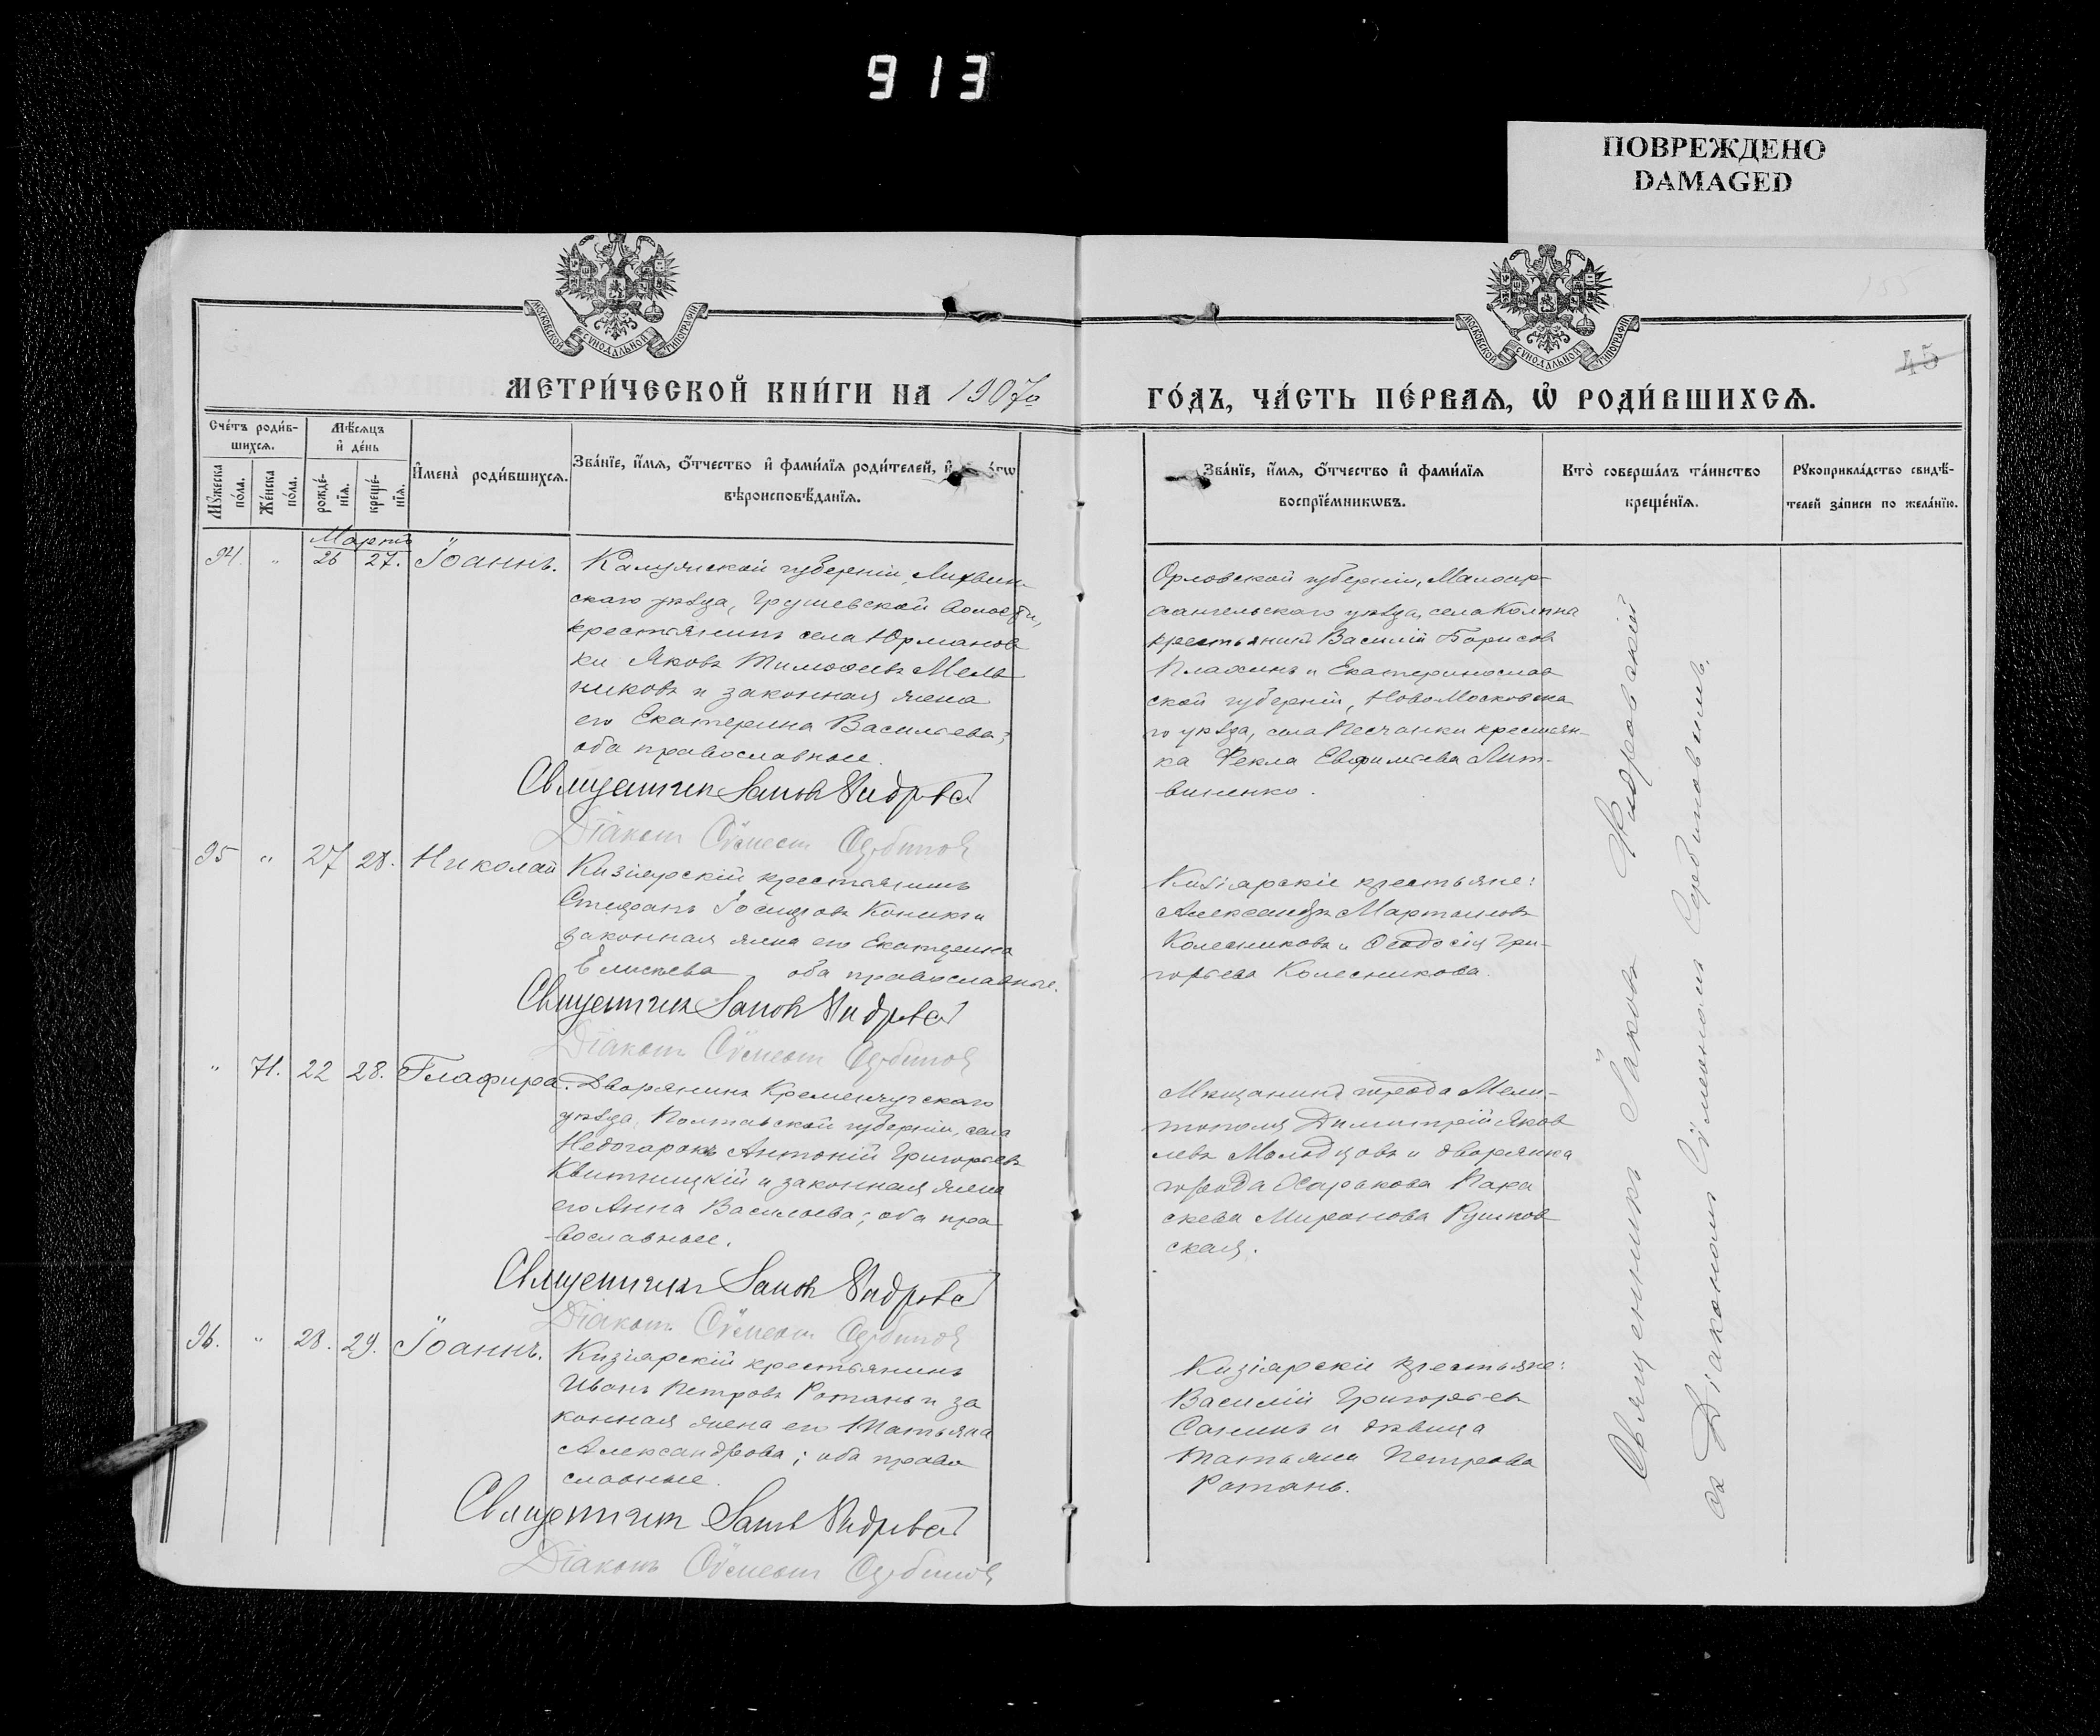 913
ПОВРЕЖДЕНО
DAMAGED
МОСКОВСКОЙ СѴНОДАЛЬНОЙ ТИПОГРАФІИ
МОСКОВСКОЙ СѴНОДАЛЬНОЙ ТИПОГРАФІИ
45
МЕТРИ́ЧЕСКОЙ КНИ́ГИ НА 1907
ГО́ДЪ, ЧА́СТЬ ПЕ́РВАѦ, Ѡ҆ РОДИ́ВШИХСѦ.
Сче́тъ роди́в-
шихсѧ.
Мꙋжеска по́ла.
Же́нска по́ла.
Мѣ́сѧцъ
и҆ де́нь
рожде́-
нїѧ.
креще́-
нїѧ.
И҆мена̀ роди́вшихсѧ.
Зва́нїе, и҆́мѧ, ѻ҆́тчество и҆ фами́лїѧ роди́телей, и҆
вѣроисповѣ́данїѧ.
Зва́нїе, и҆́мѧ, ѻ҆́тчество и҆ фами́лїѧ
воспрїе́мникѡвъ.
Кто̀ соверша́лъ та́инство
креще́нїѧ.
Рꙋкоприкла́дство свидѣ́-
телей за́писи по жела́нїю.
Мартъ
94. " 26 27. Іоаннъ.
Калужской губерніи, Лихвин-
скаго уѣзда, Грушевской Волости,
крестьянинъ села Юрманов
ки Яковъ Тимофеевъ Мель
никовъ и законная жена
его Екатерина Васильева;
оба православные.
Священник Іаков Жидровский
Діаконъ Сѵмеонъ Сербинов
Орловской губерніи, Малоар-
хангельскаго уѣзда, села Колпна
крестьянинъ Василій Борисовъ
Плахинъ и Екатеринослав
ской губерніи, Новомосковска
го уѣзда, села Песчанки крестьян-
ка Фекла Евфимiева Лит-
виненко.
95 " 27 28. Николай
Кизіярскій крестьянинъ
Стефанъ Іосифовъ Коникъ и
законная жена его Екатерина
Елисѣева, оба православные.
Священник Іаков Жидровский
Діаконъ Сѵмеонъ Сербинов
Кизіярскіе крестьяне:
Александръ Мартыновъ
Колесниковъ и Феодосія Гри-
горьева Колесникова.
" 71. 22 28. Глафира.
Дворянинъ Кременчугскаго
уѣзда, Полтавской губерніи, села
Недогарокъ Антоній Григорьевъ
Квитницкій и законная жена
его Анна Васильева; оба пра
вославные.
Священник Іаков Жидровский
Діаконъ Сѵмеонъ Сербинов
Мѣщанинъ города Мели-
тополя Димитрій Яков
левъ Молодцовъ и дворянка
города Харькова Пара
скева Миронова
ская.
96. " 28. 29. Іоаннъ.
Кизіярскій крестьянинъ
Иванъ Петровъ Ротань и за
конная жена его Татьяна
Александрова; оба право
славные.
Священник Іаков Жидровский
Діаконъ Сѵмеонъ Сербинов
Кизіярскіе крестьяне:
Василій Григорьевъ
Санинъ и дѣвица
Татьяна Петрова
Ротань.
Священникъ Іаковъ Жидровский
съ Діакономъ Сѵмеономъ Сербиновымъ.